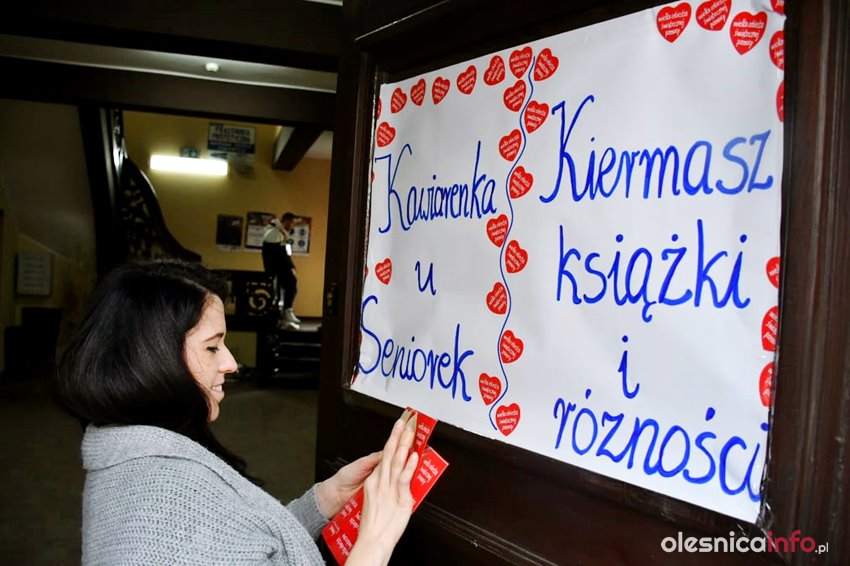 Kawiarenka
u
Seniorek
Kiermasz
książki
i
różności
wielka orkiestra
świątecznej
pomocy
PRACOWNIA
olesnicainfo.pl